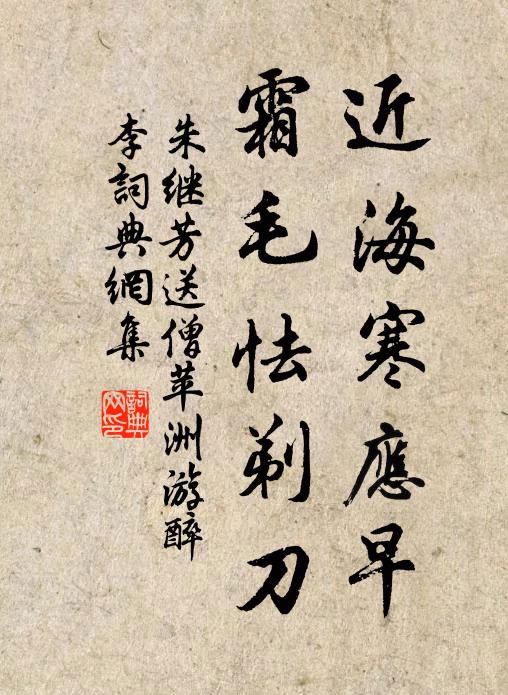 近海寒應早
霜毛怯剃刀
朱继芳送僧苹洲游醉
李詞典網集
詞典
网印